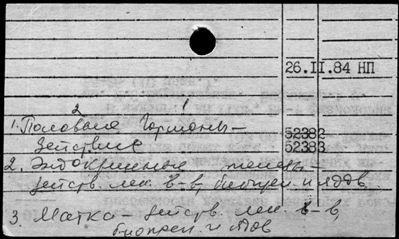 26.II.84 НП
2 1
1. Половые Гормоны-
действие
52382
52383
2. Эндокринные железы-
действ. лек. в-в, биопреп. и ядов
3. Матка - действ. лек. в-в,
биопреп. и ядов